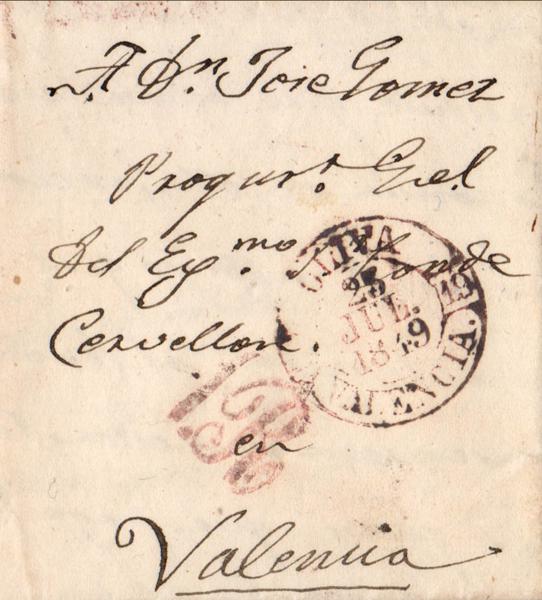 A Dn. Jose Gomez
Procurr. Gel.
del Exmo. S. Conde
Cervellon.
en
Valencia
OLIVA
25
JUL.
1849
19
VALENCIA.